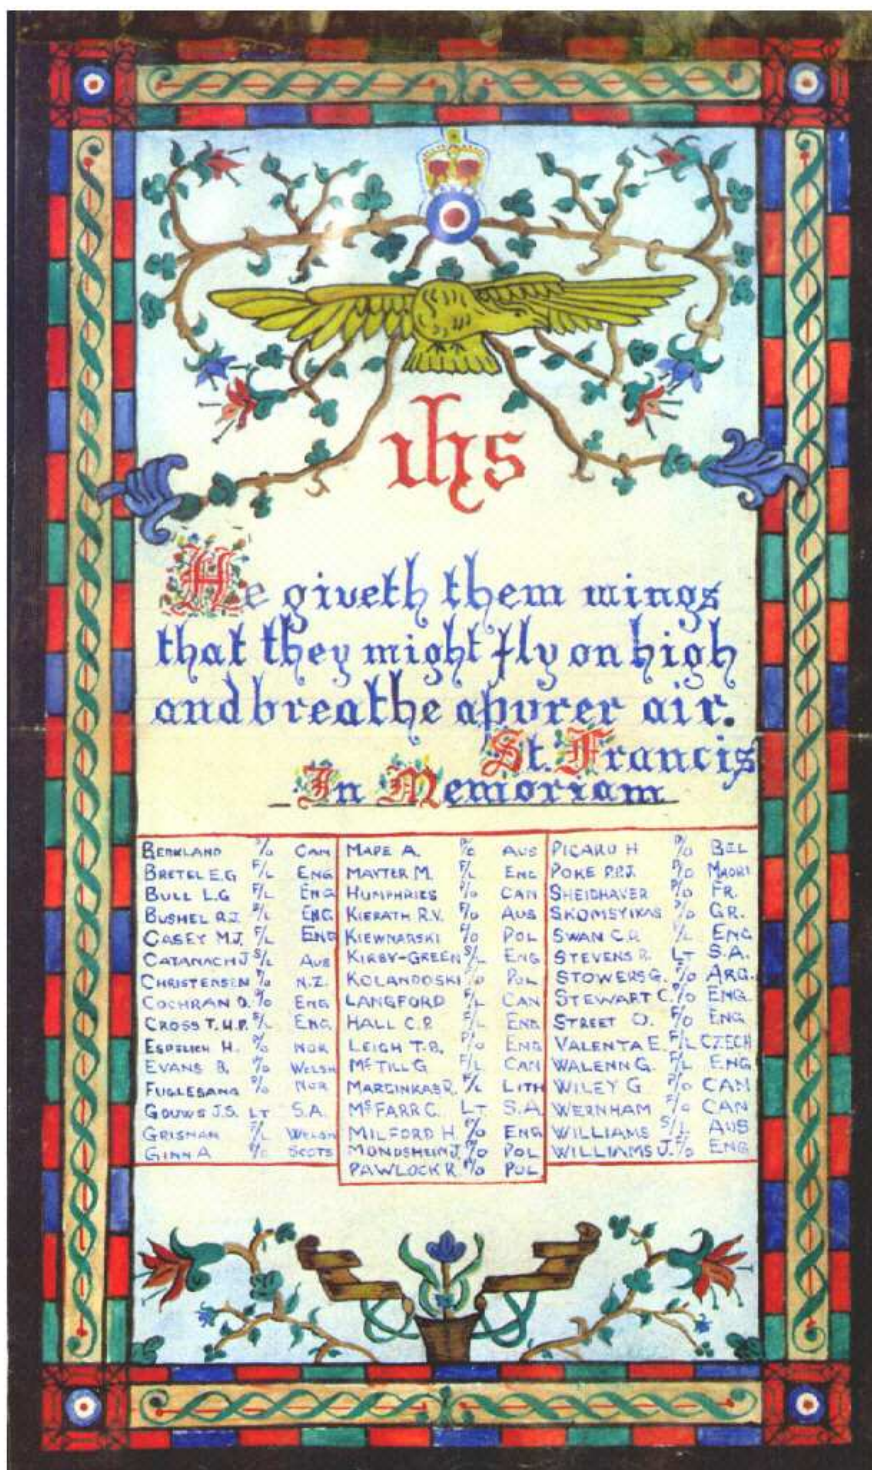 ihs
He giveth them wings
that they might fly on high
and breathe a purer air.
St. Francis
In Memoriam
BERKLAND P/O CAN
BRETEL E.G F/L ENG
BULL L.G F/L ENG
BUSHEL R.J. S/L ENG
CASEY M.J. F/L ENG
CATANACH J. S/L AUS
CHRISTENSEN P/O N.Z.
COCHRAN D. F/O ENG
CROSS T.H.P. S/L ENG
ESPELICH H. NOR
EVANS B. WELSH
FUGLESANG P/O NOR
GOUWS J.S. LT S.A.
GRISMAN F/L WELSH
GINN A SCOTS
MAPE A. AUS
MAYTER M. F/L ENG
HUMPHRIES CAN
KIERATH R.V. F/O AUS
KIEWNARSKI F/O POL
KIRBY-GREEN S/L ENG
KOLANDOSKI POL
LANGFORD F/L CAN
HALL C.P. F/L ENG
LEIGH T.B. ENG
McTILL G F/L CAN
MARGINKAS R. F/L LITH
McFARR C. LT S.A.
MILFORD H. F/O ENG
MONDSHEIN J. POL
PAWLOCK R. F/O POL
PICARD H P/O BEL
POKE P.P.J. P/O MAORI
SHEIDHAVER P/O FR.
SKOMSYIKAS P/O GR.
SWAN C.D. F/L ENG
STEVENS R. LT S.A.
STOWERS G. F/O ARG.
STEWART C. ENG.
STREET D. F/O ENG
VALENTA E. F/L CZECH
WALENN G. F/L ENG
WILEY G P/O CAN
WERNHAM F/O CAN
WILLIAMS S/L AUS
WILLIAMS J. F/O ENG